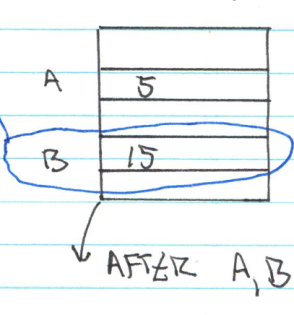 A 5
B 15
AFTER A, B